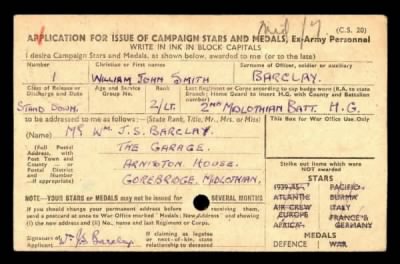 Med/17
(C.S. 20)
APPLICATION FOR ISSUE OF CAMPAIGN STARS AND MEDALS, Ex-Army Personnel
WRITE IN INK IN BLOCK CAPITALS
I desire Campaign Stars and Medals, as shown below, awarded to me (or to the late)
Number Christian or First names Surname of Officer, soldier or auxiliary
1 WILLIAM JOHN SMITH BARCLAY.
Class of Release or Discharge and Date Age and Service Group No. Rank Last Regiment or Corps according to cap badge worn (R.A. to state Branch; Home Guard to insert H.G. with County and Battalion number)
STAND DOWN. 2/LT. 2ND MIDLOTHIAN BATT. H.G.
to be addressed to me as follows:— (State Rank, Title, Mr., Mrs. or Miss)
This Box for War Office Use Only
(Name) MR WM. J.S. BARCLAY.
(Full Postal Address, with Post Town and County — or Postal District and Number if appropriate)
THE GARAGE.
ARNISTON HOUSE.
GOREBRIDGE. MIDLOTHIAN.
Strike out items which were NOT awarded
STARS
1939-45 PACIFIC
ATLANTIC BURMA
AIR CREW ITALY
EUROPE FRANCE &
AFRICA GERMANY
MEDALS
DEFENCE WAR
NOTE—YOUR STARS or MEDALS may not be issued for SEVERAL MONTHS
Should you change your permanent address before receiving them, you should send a postcard at once to War Office marked "Medals: New Address" and showing (i) the new address and No., name and last Regiment or Corps.
Signature of Applicant Wm JS Barclay.
If claiming as legatee or next-of-kin, state relationship to deceased